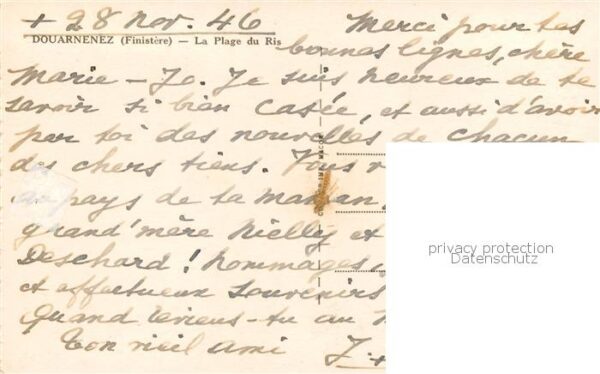 + 28 nov. 46
DOUARNENEZ (Finistère) — La Plage du Ris
Merci pour tes
bonnes lignes, chère
Marie-Jo. Je suis heureux de te
savoir si bien casée, et aussi d'avoir
par toi des nouvelles de chacun
des chers tiens. Vous
au pays de ta maman,
grand'mère Nielly et
Deschard ! hommages,
et affectueux souvenirs
Quand reviens-tu au
Ton vieil ami J. +
privacy protection
Datenschutz